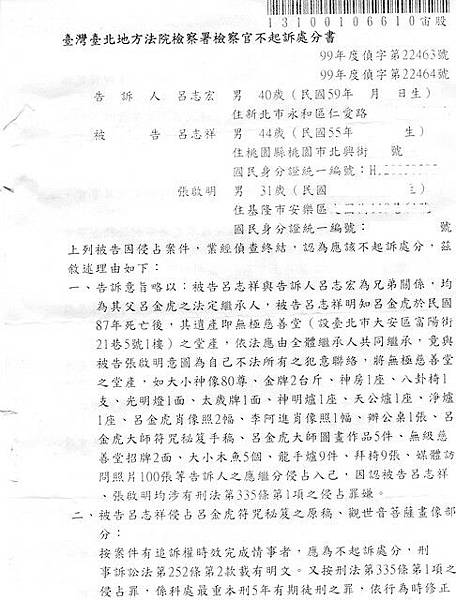 13100106610宙股
臺灣臺北地方法院檢察署檢察官不起訴處分書
99年度偵字第22463號
99年度偵字第22464號
告 訴 人 呂志宏 男 40歲（民國59年 月 日生）
住新北市永和區仁愛路
被 告 呂志祥 男 44歲（民國55年 生）
住桃園縣桃園市北興街 號
國民身分證統一編號：H
張啟明 男 31歲（民國
住基隆市安樂區
國民身分證統一編號： 號
上列被告因侵占案件，業經偵查終結，認為應該不起訴處分，茲
敘述理由如下：
一、告訴意旨略以：被告呂志祥與告訴人呂志宏為兄弟關係，均
為其父呂金虎之法定繼承人，被告呂志祥明知呂金虎於民國
87年死亡後，其遺產即無極慈善堂（設臺北市大安區富陽街
21巷5號1樓）之堂產，依法應由全體繼承人共同繼承，竟與
被告張啟明意圖為自己不法所有之犯意聯絡，將無極慈善堂
之堂產，如大小神像80尊、金牌2台斤、神房1座、八卦椅1
支、光明燈1面、太歲牌1面、神明爐1座、天公爐1座、淨爐
1座、呂金虎肖像照2幅、李阿進肖像照1幅、辦公桌1張、呂
金虎大師符咒秘笈手稿、呂金虎大師圖畫作品5件、無級慈
善堂招牌2面、大小木魚5個、龍手爐9件、拜椅9張、媒體訪
問照片100張等告訴人之應繼分侵占入己，因認被告呂志祥
、張啟明均涉有刑法第335條第1項之侵占罪嫌。
二、被告呂志祥侵占呂金虎符咒秘笈之原稿、觀世音菩薩畫像部
分：
按案件有追訴權時效完成情事者，應為不起訴處分，刑
事訴訟法第252條第2款載有明文。又按刑法第335條第1項之
侵占罪，係科處最重本刑5年有期徒刑之罪，依行為時修正